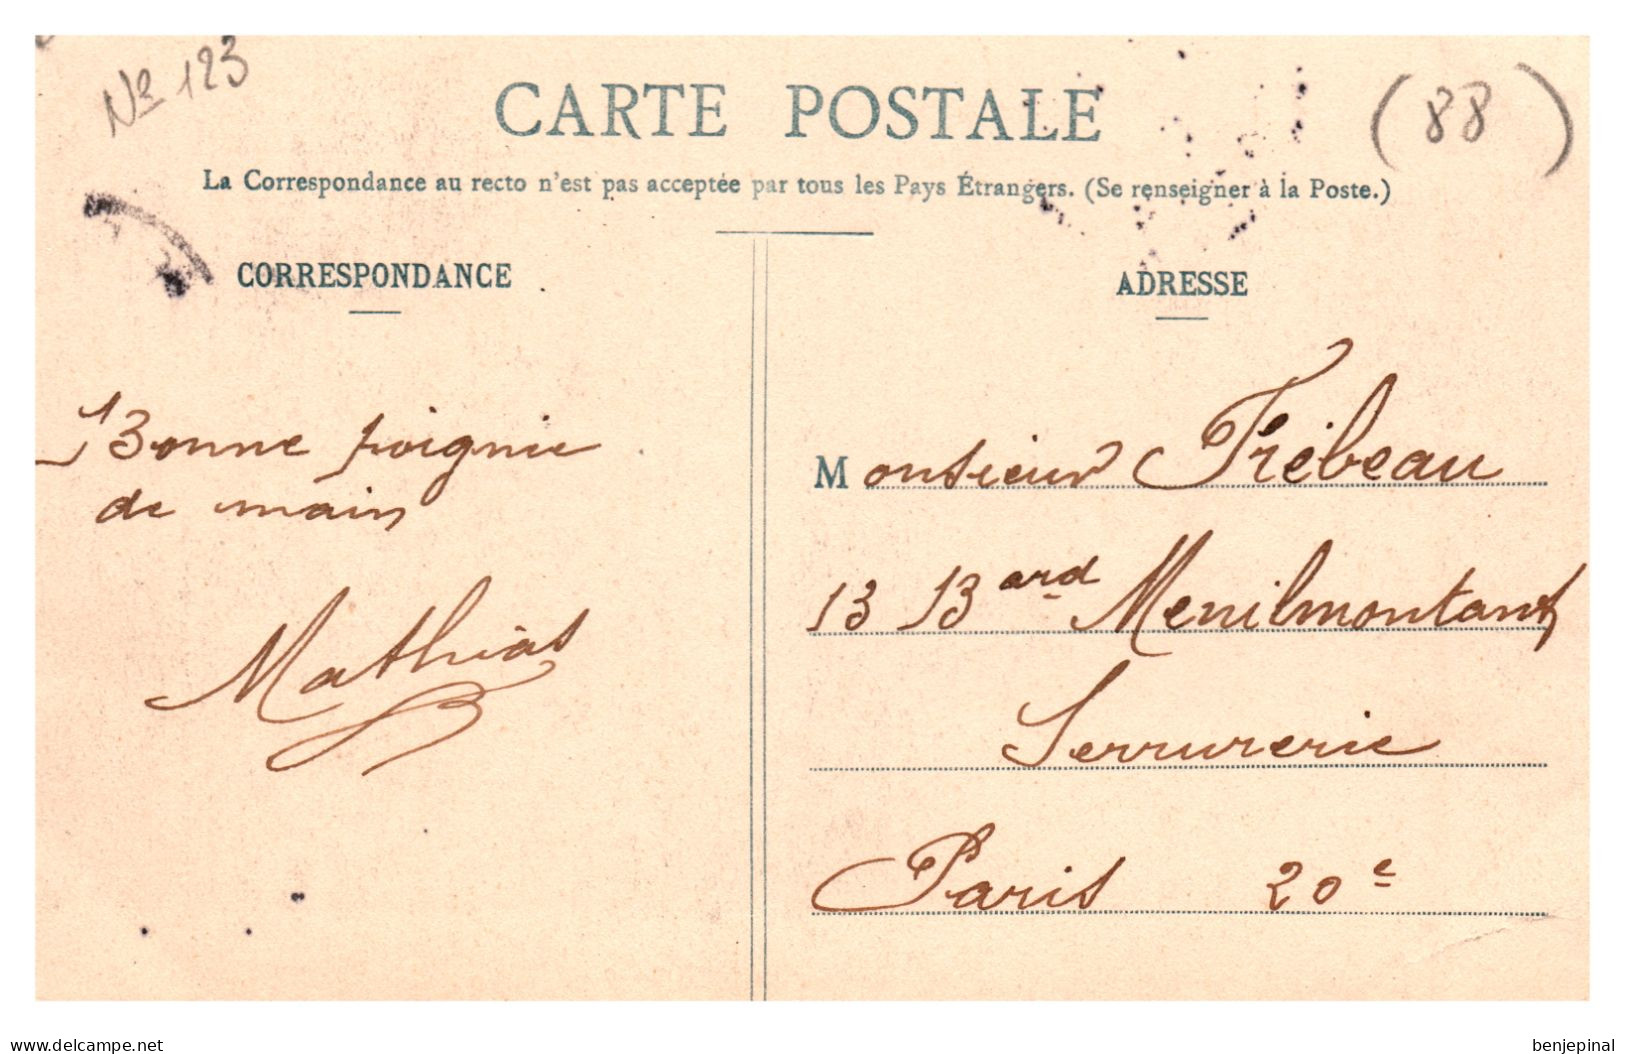 Nº 123
(88)
CARTE POSTALE
La Correspondance au recto n'est pas acceptée par tous les Pays Étrangers. (Se renseigner à la Poste.)
CORRESPONDANCE
Bonne poignie
de main
Mathias
ADRESSE
Monsieur Trébeau
13 Bard Menilmontant
Serrurerie
Paris 20e
www.delcampe.net
benjepinal